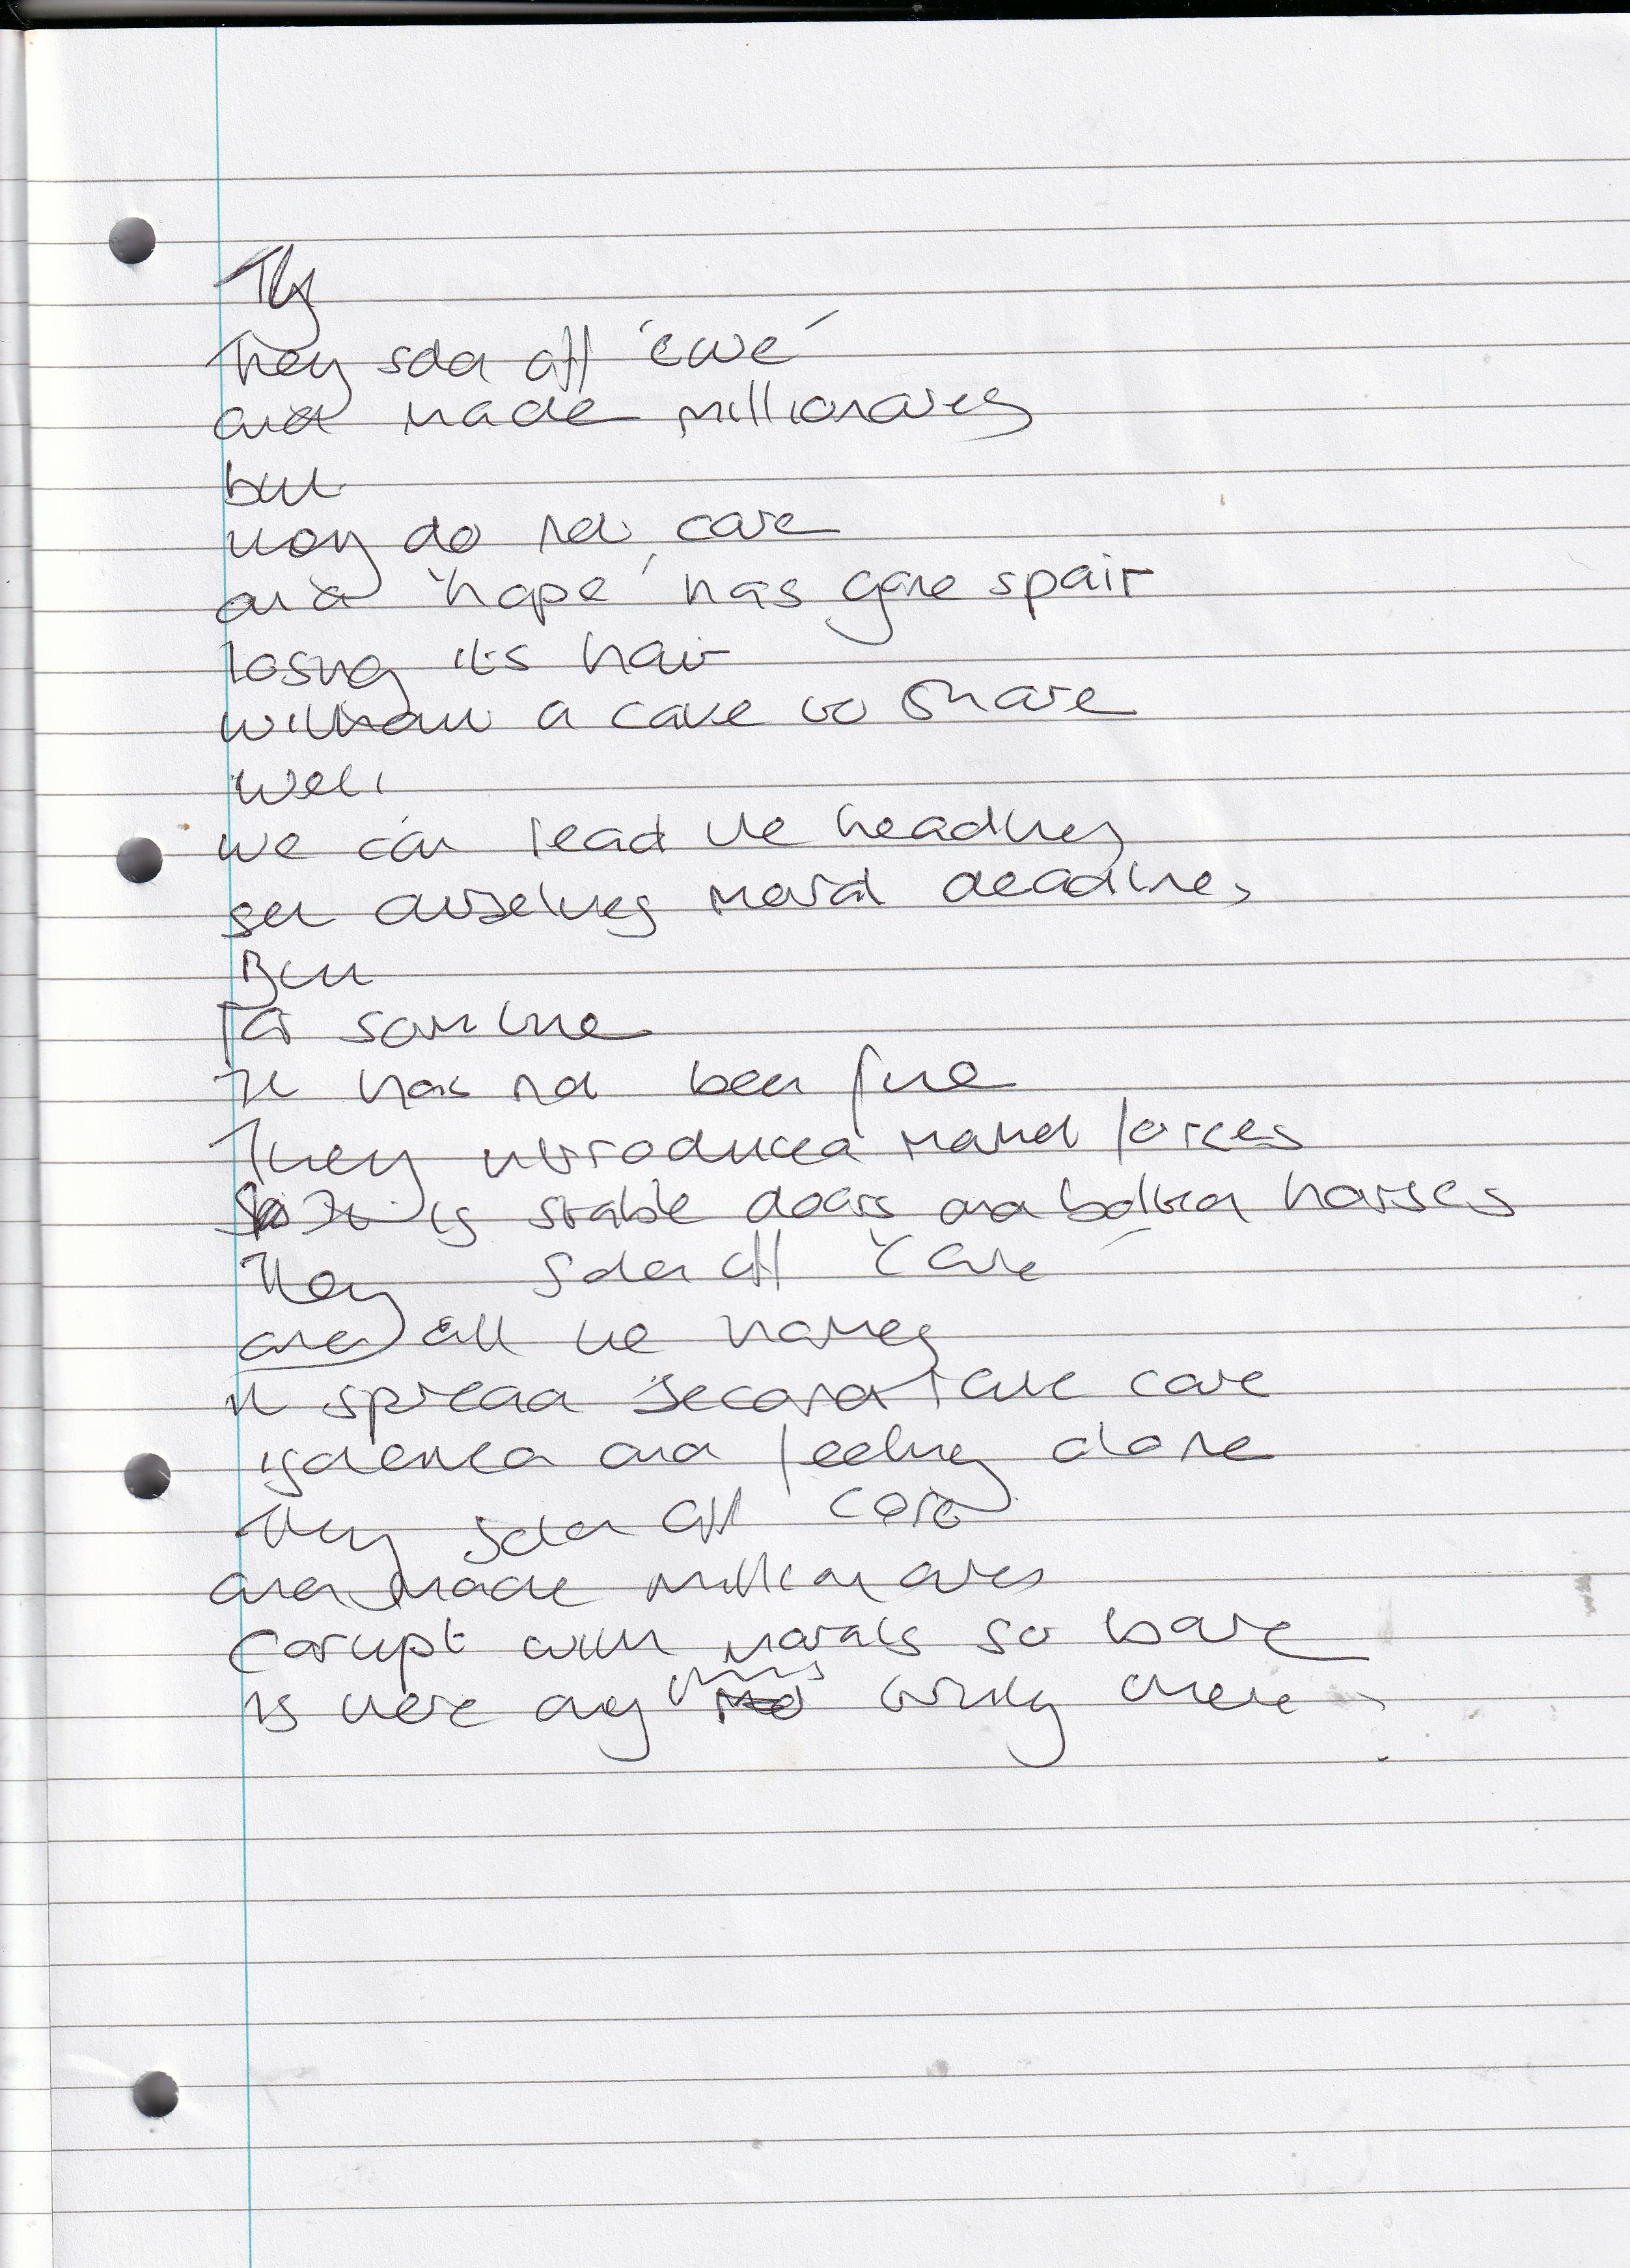 They sold off 'care'
and made millionaires
but
they do not care
and 'hope' has gone spair
losing its hair
without a care to share
well
we can read the headlines
set ourselves moral deadlines
But
for some time
It has not been fine
They introduced market forces
So It is stable doors and bolted horses
They sold off 'care'
and all the homes
it spread care
isolated and feeling alone
They sold off care
and made millionaires
Corrupt with morals so bare
is there any truly there ?